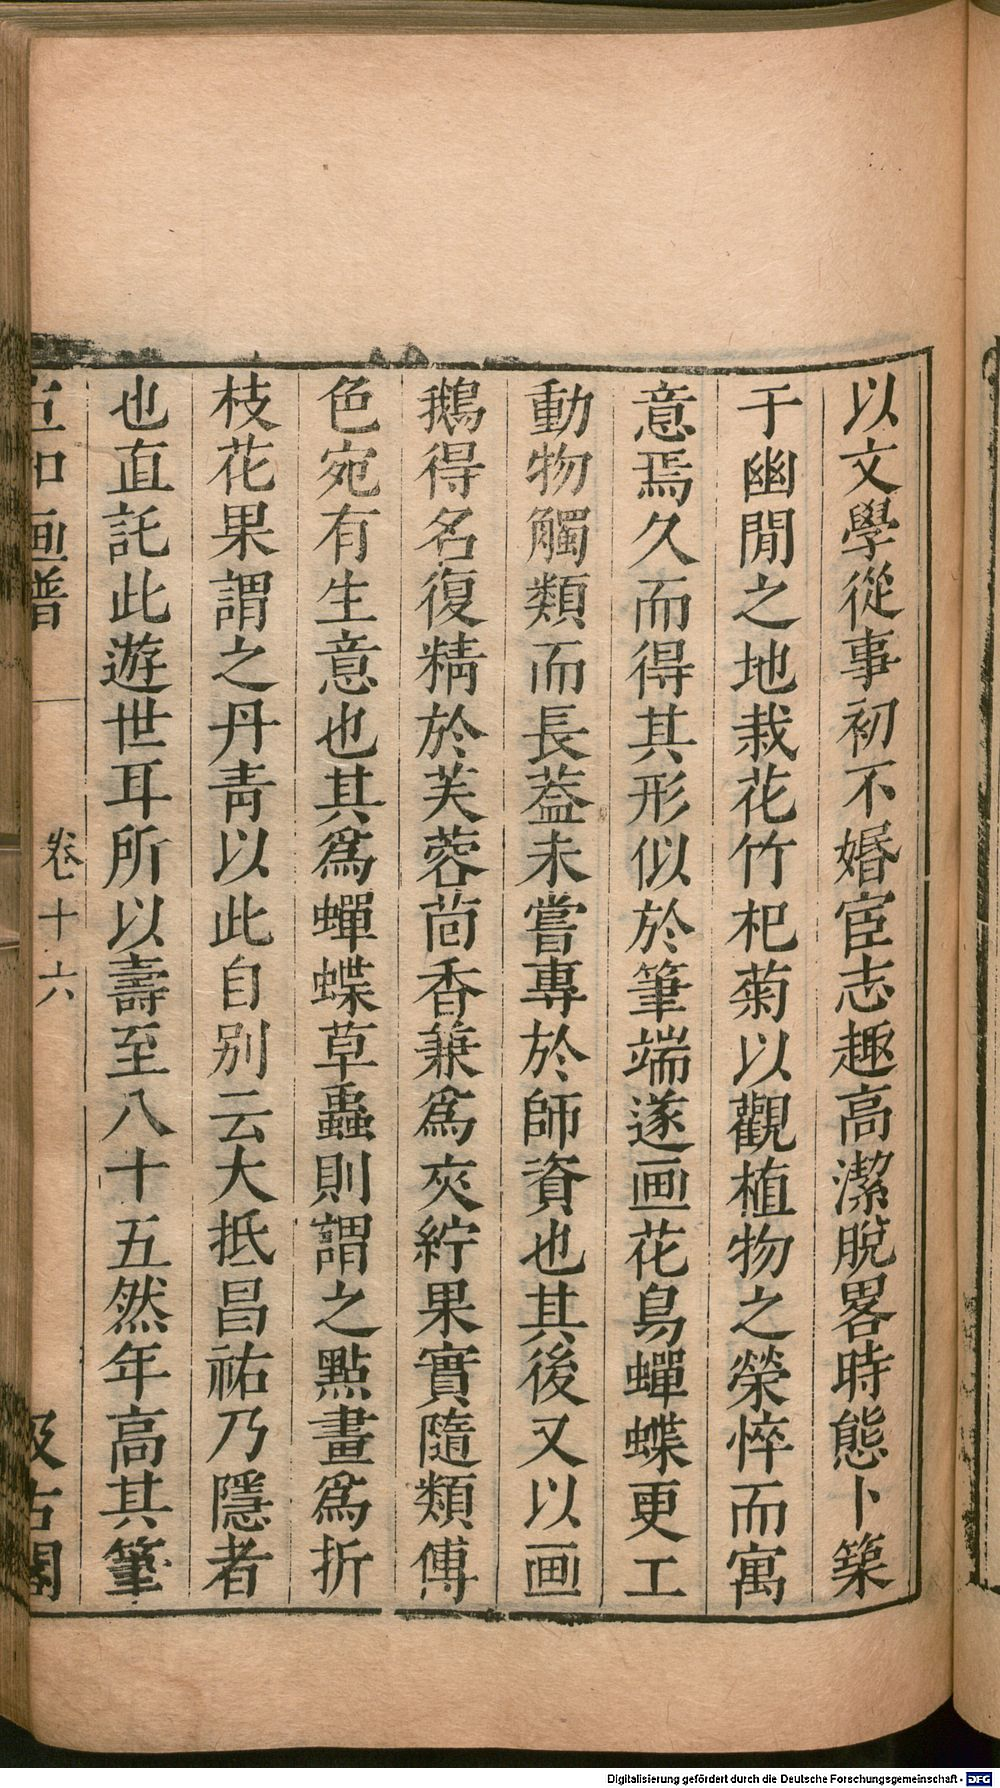 以文學從事初不婚宦志趣高潔脫畧時態卜築
于幽閒之地栽花竹杞菊以觀植物之榮悴而寓
意焉久而得其形似於筆端遂画花鳥蟬蝶更工
動物觸類而長蓋未嘗專於師資也其後又以画
鵝得名復精於芙蓉茴香兼爲夾紵果實隨類傅
色宛有生意也其爲蟬蝶草蟲則謂之點畫爲折
枝花果謂之丹靑以此自别云大抵昌祐乃隱者
也直託此遊世耳所以壽至八十五然年高其筆
宣和画譜
卷十六
汲古閣
Digitalisierung gefördert durch die Deutsche Forschungsgemeinschaft - DFG